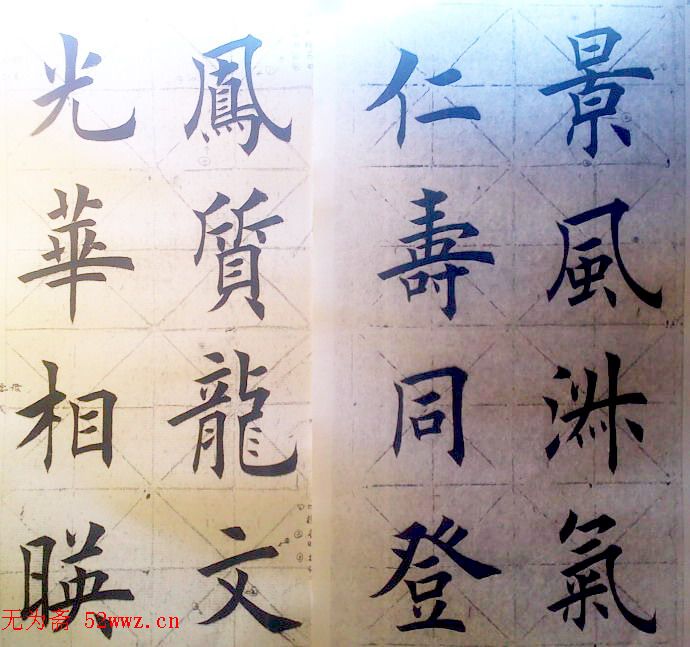 景風氣
仁壽同登
鳳質龍文
光華相暎
无为斋 52wwz.cn